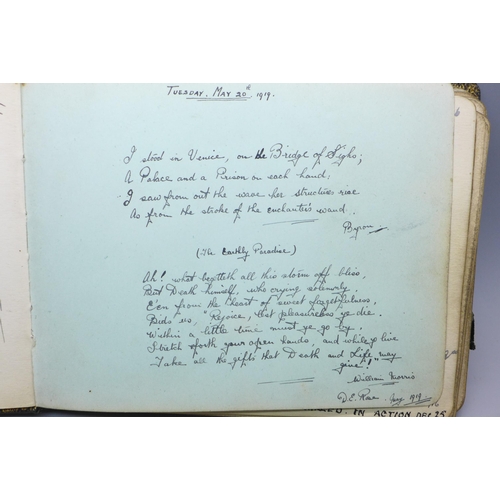 TUESDAY. MAY 20th 1919.
I stood in Venice, on the Bridge of Sighs;
A Palace and a Prison on each hand;
I saw from out the wave her structures rise
As from the stroke of the enchanter's wand.
Byron
(The Earthly Paradise)
Ah! what begetteth all this storm off bliss,
But Death himself, who crying solemnly,
E'en from the heart of sweet forgetfulness,
Bids us, "Rejoice, lest pleasureless ye die.
Within a little time must ye go by.
Stretch forth your open hands, and while ye live
Take all the gifts that Death and Life may
give!"
William Morris
D.E. 1919
IN ACTION DEC 25